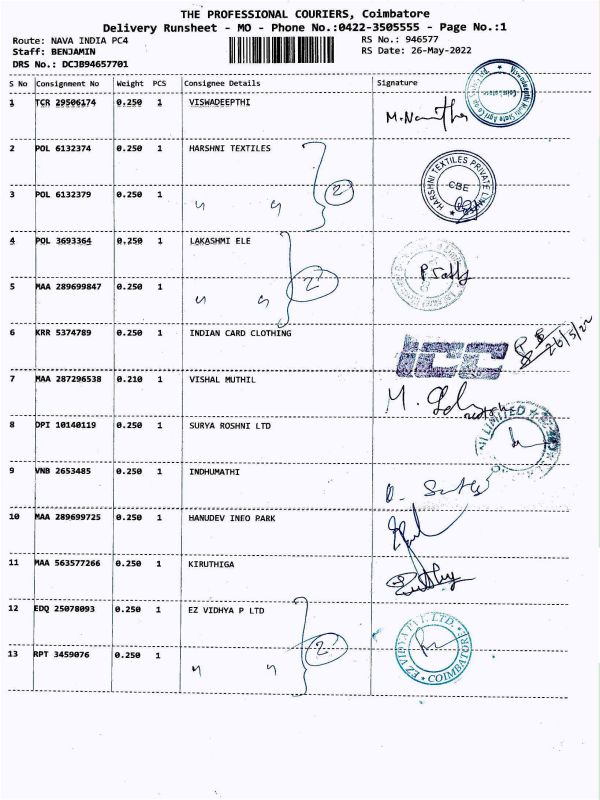 THE PROFESSIONAL COURIERS, Coimbatore
Delivery Runsheet - MO - Phone No.:0422-3505555 - Page No.:1
Route: NAVA INDIA PC4 RS No.: 946577
Staff: BENJAMIN RS Date: 26-May-2022
DRS No.: DCJB94657701
S No Consignment No Weight PCS Consignee Details Signature
1 TCR 29506174 0.250 1 VISWADEEPTHI
2 POL 6132374 0.250 1 HARSHNI TEXTILES
HARSHNI TEXTILES PRIVATE LIMI
CBE
2
3 POL 6132379 0.250 1 〃 〃
4 POL 3693364 0.250 1 LAKASHMI ELE
2
5 MAA 289699847 0.250 1 〃 〃
6 KRR 5374789 0.250 1 INDIAN CARD CLOTHING
ICC
26/5/22
7 MAA 287296538 0.210 1 VISHAL MUTHIL
8 DPI 10140119 0.250 1 SURYA ROSHNI LTD
LIMITED
9 VNB 2653485 0.250 1 INDHUMATHI
10 MAA 289699725 0.250 1 HANUDEV INEO PARK
11 MAA 563577266 0.250 1 KIRUTHIGA
12 EDQ 25078093 0.250 1 EZ VIDHYA P LTD
EZ VIDYA PVT. LTD. COIMBATORE
2
13 RPT 3459076 0.250 1 〃 〃